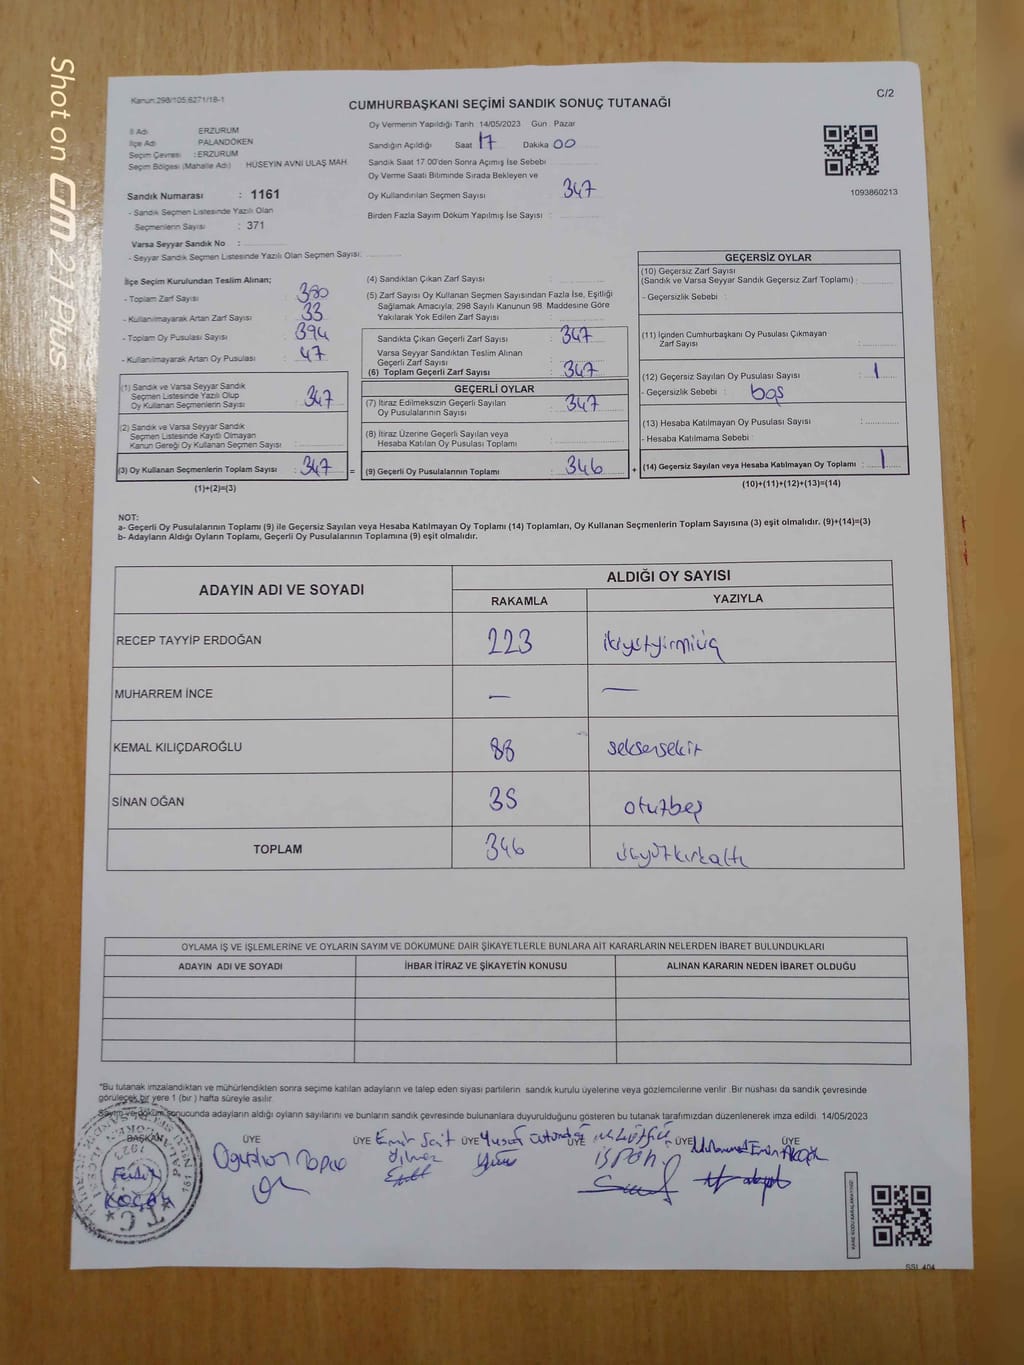 Shot on GM 21 Plus
Kanun:298/105;6271/18-1
C/2
CUMHURBAŞKANI SEÇİMİ SANDIK SONUÇ TUTANAĞI
İl Adı ERZURUM
İlçe Adı PALANDÖKEN
Seçim Çevresi : ERZURUM
Seçim Bölgesi (Mahalle Adı) HÜSEYİN AVNİ ULAŞ MAH.
Sandık Numarası : 1161
- Sandık Seçmen Listesinde Yazılı Olan
Seçmenlerin Sayısı : 371
Varsa Seyyar Sandık No :
- Seyyar Sandık Seçmen Listesinde Yazılı Olan Seçmen Sayısı:
Oy Vermenin Yapıldığı Tarih 14/05/2023 Gün Pazar
Sandığın Açıldığı Saat 17 Dakika 00
Sandık Saat 17 00'den Sonra Açımış İse Sebebi
Oy Verme Saati Bitiminde Sırada Bekleyen ve
Oy Kullandırılan Seçmen Sayısı : 347
Birden Fazla Sayım Döküm Yapılmış İse Sayısı :
1093860213
İlçe Seçim Kurulundan Teslim Alınan;
- Toplam Zarf Sayısı : 380
- Kullanılmayarak Artan Zarf Sayısı : 33
- Toplam Oy Pusulası Sayısı : 394
- Kullanılmayarak Artan Oy Pusulası : 47
(1) Sandık ve Varsa Seyyar Sandık
Seçmen Listesinde Yazılı Olup
Oy Kullanan Seçmenlerin Sayısı : 347
(2) Sandık ve Varsa Seyyar Sandık
Seçmen Listesinde Kayıtlı Olmayan
Kanun Gereği Oy Kullanan Seçmen Sayısı :
(3) Oy Kullanan Seçmenlerin Toplam Sayısı : 347 =
(1)+(2)=(3)
(4) Sandıktan Çıkan Zarf Sayısı :
(5) Zarf Sayısı Oy Kullanan Seçmen Sayısından Fazla İse, Eşitliği
Sağlamak Amacıyla, 298 Sayılı Kanunun 98. Maddesine Göre
Yakılarak Yok Edilen Zarf Sayısı :
Sandıkta Çıkan Geçerli Zarf Sayısı : 347
Varsa Seyyar Sandıktan Teslim Alınan
Geçerli Zarf Sayısı :
(6) Toplam Geçerli Zarf Sayısı : 347
GEÇERLİ OYLAR
(7) İtiraz Edilmeksizin Geçerli Sayılan
Oy Pusulalarının Sayısı : 347
(8) İtiraz Üzerine Geçerli Sayılan veya
Hesaba Katılan Oy Pusulası Toplamı :
(9) Geçerli Oy Pusulalarının Toplamı : 346 +
GEÇERSİZ OYLAR
(10) Geçersiz Zarf Sayısı
(Sandık ve Varsa Seyyar Sandık Geçersiz Zarf Toplamı) :
- Geçersizlik Sebebi :
(11) İçinden Cumhurbaşkanı Oy Pusulası Çıkmayan
Zarf Sayısı :
(12) Geçersiz Sayılan Oy Pusulası Sayısı : 1
- Geçersizlik Sebebi : boş
(13) Hesaba Katılmayan Oy Pusulası Sayısı :
- Hesaba Katılmama Sebebi :
(14) Geçersiz Sayılan veya Hesaba Katılmayan Oy Toplamı : 1
(10)+(11)+(12)+(13)=(14)
NOT:
a- Geçerli Oy Pusulalarının Toplamı (9) ile Geçersiz Sayılan veya Hesaba Katılmayan Oy Toplamı (14) Toplamları, Oy Kullanan Seçmenlerin Toplam Sayısına (3) eşit olmalıdır. (9)+(14)=(3)
b- Adayların Aldığı Oyların Toplamı, Geçerli Oy Pusulalarının Toplamına (9) eşit olmalıdır.
ADAYIN ADI VE SOYADI
ALDIĞI OY SAYISI
RAKAMLA YAZIYLA
RECEP TAYYİP ERDOĞAN 223 ikiyüzyirmiüç
MUHARREM İNCE — —
KEMAL KILIÇDAROĞLU 88 seksensekiz
SİNAN OĞAN 35 otuzbeş
TOPLAM 346 üçyüzkırkaltı
OYLAMA İŞ VE İŞLEMLERİNE VE OYLARIN SAYIM VE DÖKÜMÜNE DAİR ŞİKAYETLERLE BUNLARA AİT KARARLARIN NELERDEN İBARET BULUNDUKLARI
ADAYIN ADI VE SOYADI İHBAR İTİRAZ VE ŞİKAYETİN KONUSU ALINAN KARARIN NEDEN İBARET OLDUĞU
*Bu tutanak imzalandıktan ve mühürlendikten sonra seçime katılan adayların ve talep eden siyasi partilerin sandık kurulu üyelerine veya gözlemcilerine verilir. Bir nüshası da sandık çevresinde
görülecek bir yere 1 (bir ) hafta süreyle asılır.
Sayım ve döküm sonucunda adayların aldığı oyların sayılarını ve bunların sandık çevresinde bulunanlara duyurulduğunu gösteren bu tutanak tarafımızdan düzenlenerek imza edildi. 14/05/2023
BAŞKAN ÜYE ÜYE ÜYE ÜYE ÜYE ÜYE
KOÇAK
Emir Sait
Yılmaz
Yusuf
Muhammed Emin
T.C.
KARE KODU KARALAMAYINIZ!
SSL 404